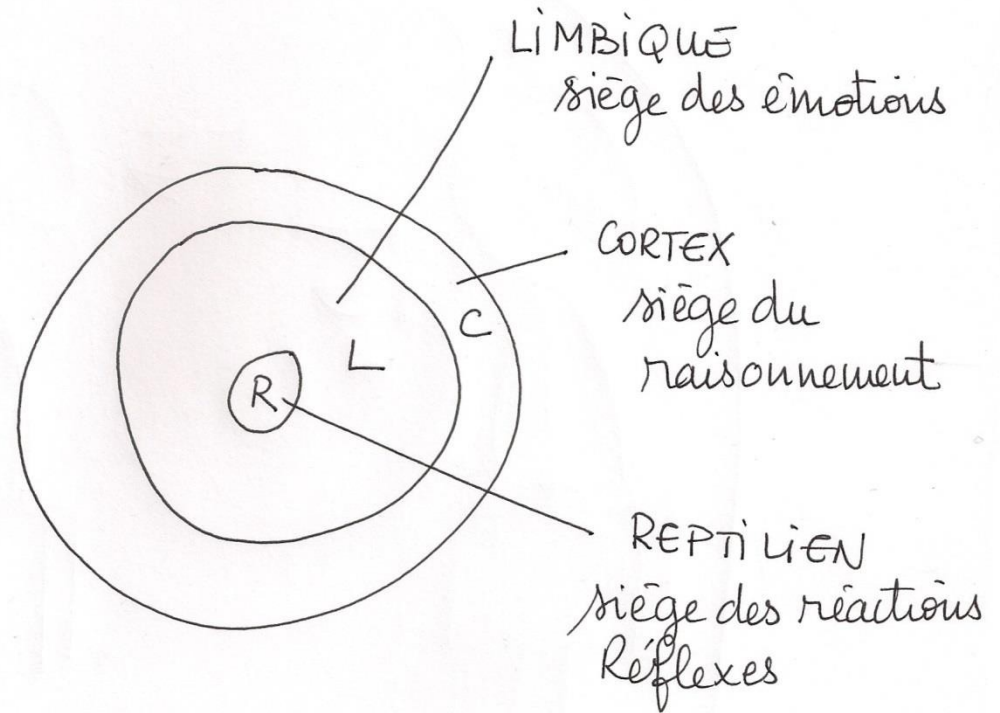 LIMBIQUE
siège des émotions
CORTEX
siège du
raisonnement
C
L
R
REPTILIEN
siège des réactions
Réflexes